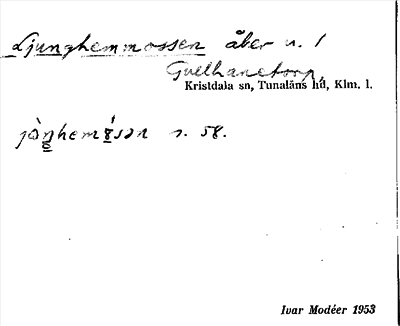 Ljunghemmossen åker n. 1
Gvelhanetorp,
Kristdala sn, Tunaläns hd, Klm. l.
s. 58.
Ivar Modéer 1953